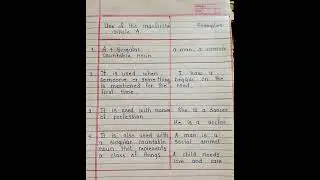 Use of the indefinite article A
Examples
1. A + singular countable noun
a man, a woman
2. It is used when someone or something is mentioned for the first time.
I saw a beggar on the road.
3. It is used with names of profession.
She is a dancer
He is a doctor.
4. It is also used with a singular countable noun that represents a class of things.
A man is a social animal
A child needs love and care